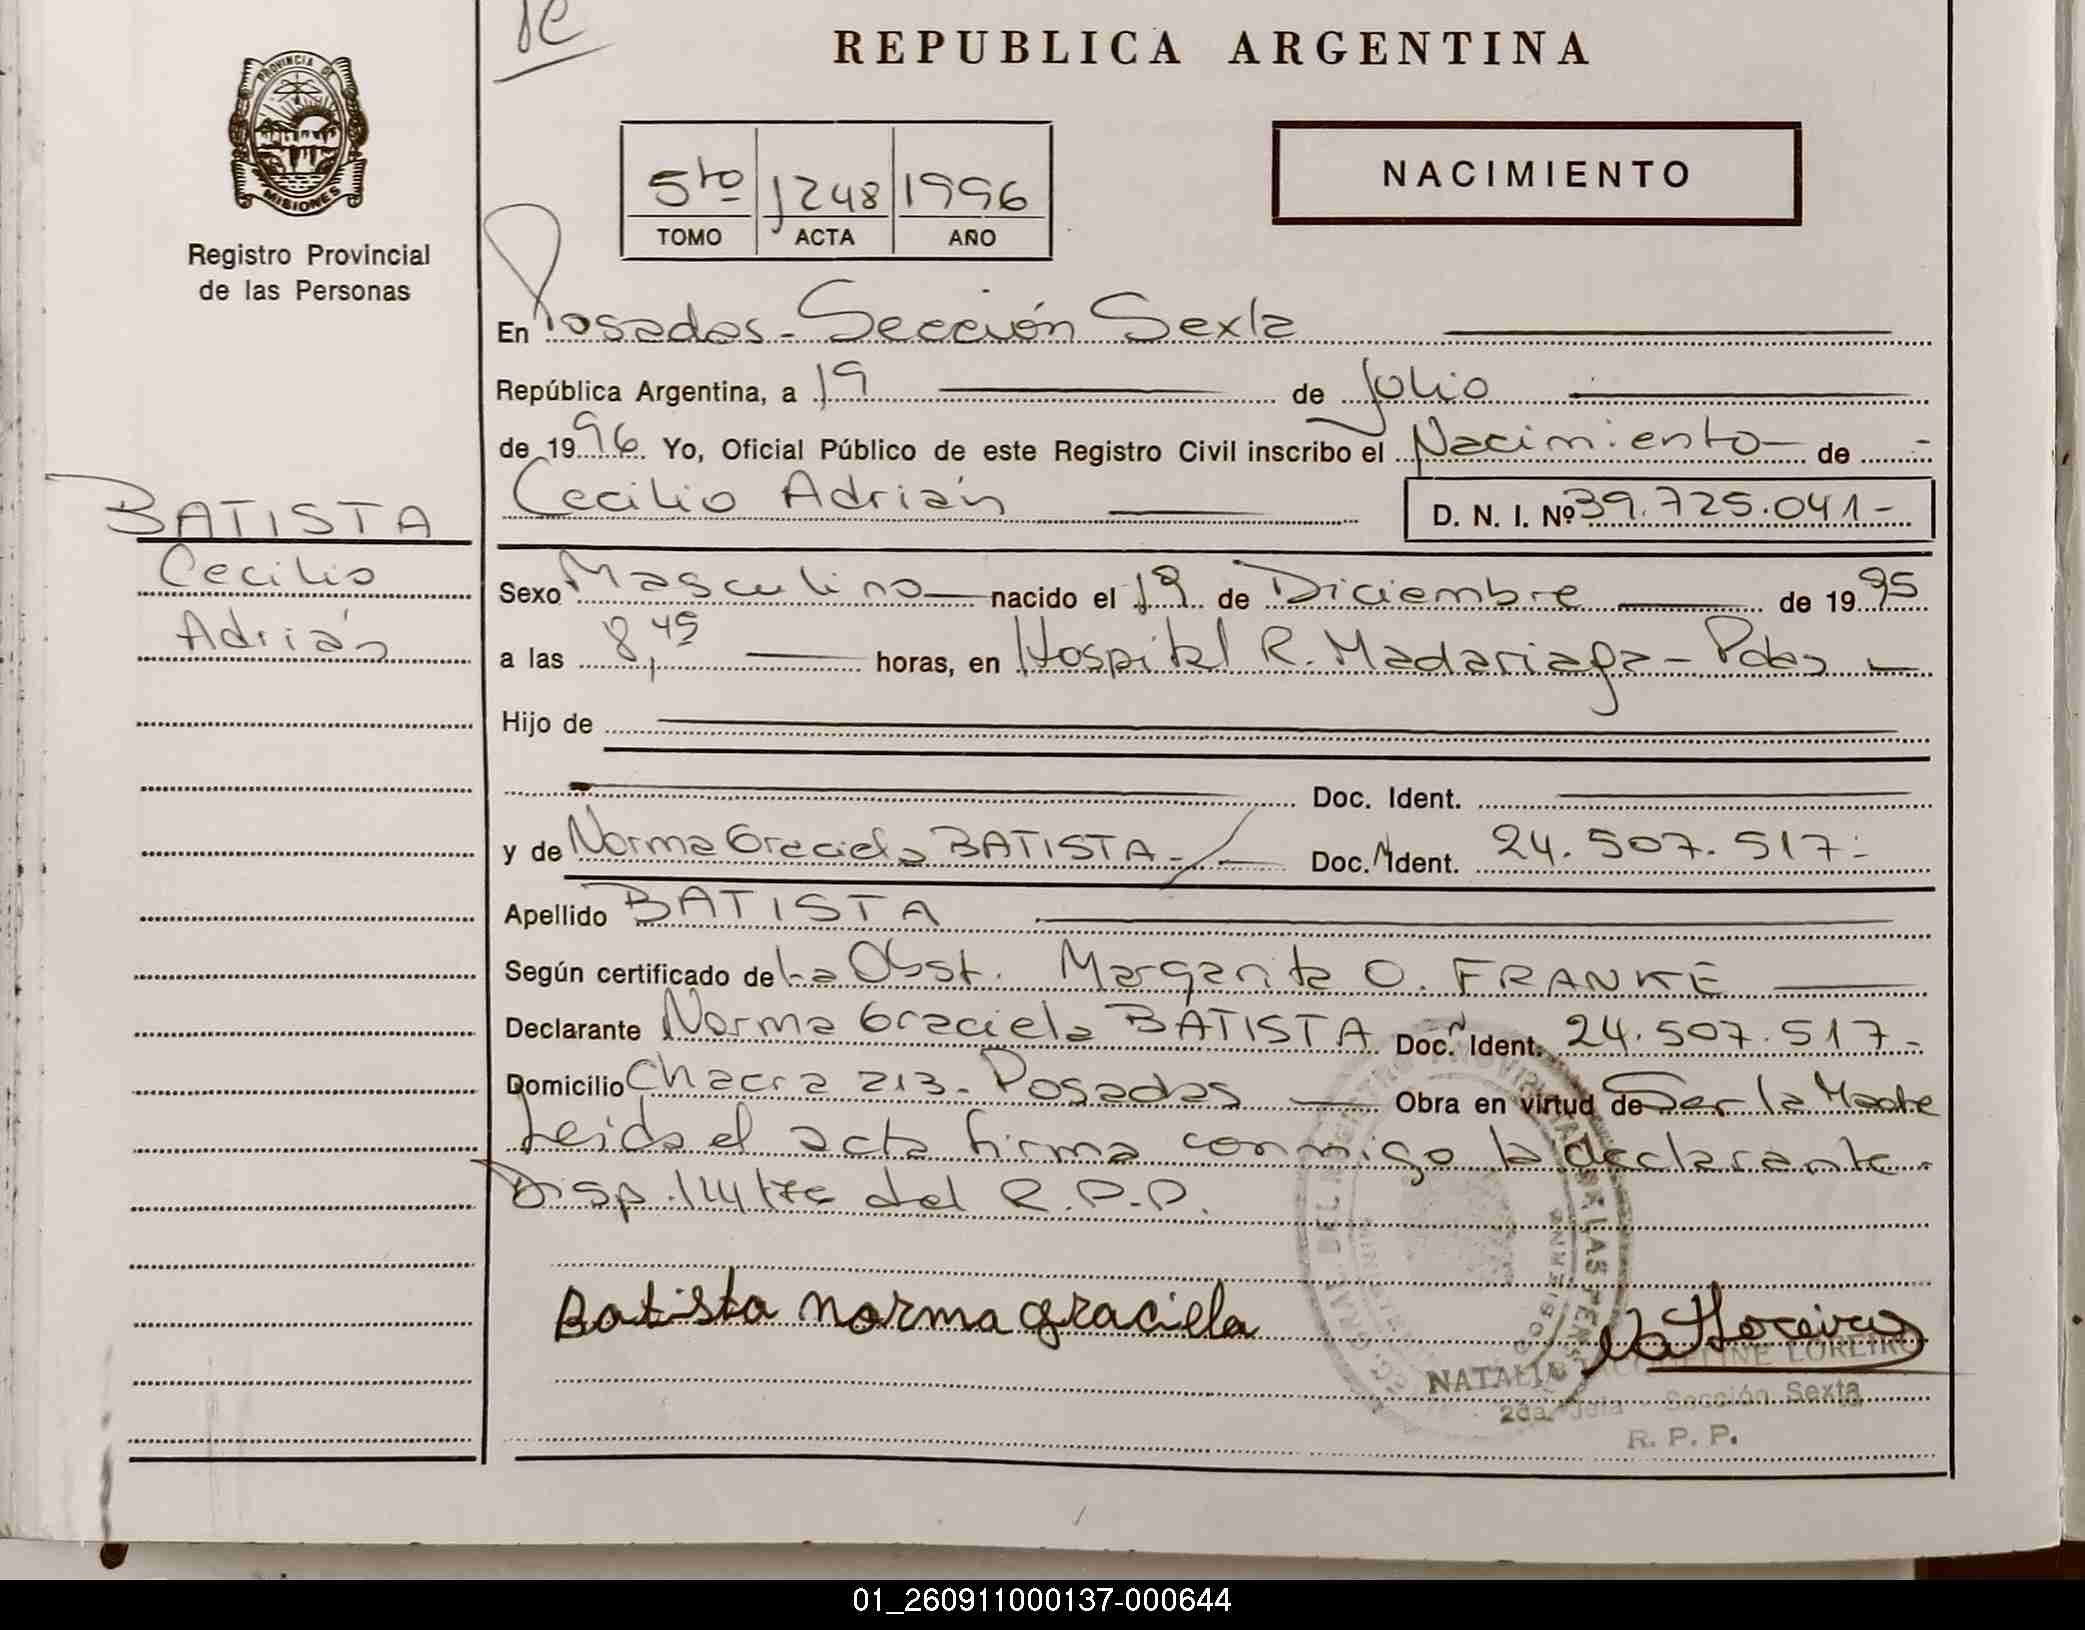 REPUBLICA ARGENTINA
PROVINCIA DE
MISIONES
Registro Provincial
de las Personas
5to 1248 1996
TOMO ACTA AÑO
NACIMIENTO
En Posadas - Sección Sexta
República Argentina, a 19 de Julio
de 1996 Yo, Oficial Público de este Registro Civil inscribo el Nacimiento de
BATISTA
Cecilio
Adrián
Cecilio Adrián D. N. I. Nº 39.725.041-
Sexo Masculino nacido el 19 de Diciembre de 1995
a las 8,45 horas, en Hospital R. Madariaga - Pdas
Hijo de
Doc. Ident.
y de Norma Graciela BATISTA - Doc. Ident. 24.507.517-
Apellido BATISTA
Según certificado de La Obst. Margarita O. FRANKE
Declarante Norma Graciela BATISTA Doc. Ident. 24.507.517-
Domicilio Chacra 213 - Posadas Obra en virtud de Ser la Madre
Leida el acta firma conmigo la declarante.
Disp. del R.P.P.
Batista norma graciela
NATALIA LOREIRO
2da. Jefa - Sección Sexta
R. P. P.
01_260911000137-000644